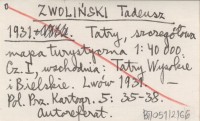 ZWOLIŃSKI Tadeusz
1931. Tatry, szczegółowa
mapa turystyczna 1:40 000.
Cz. I, wschodnia: Tatry Wysokie
i Bielskie. Lwów 1931 —
Pol. Prz. Kartogr. 5: 35-38.
Autoreferat.